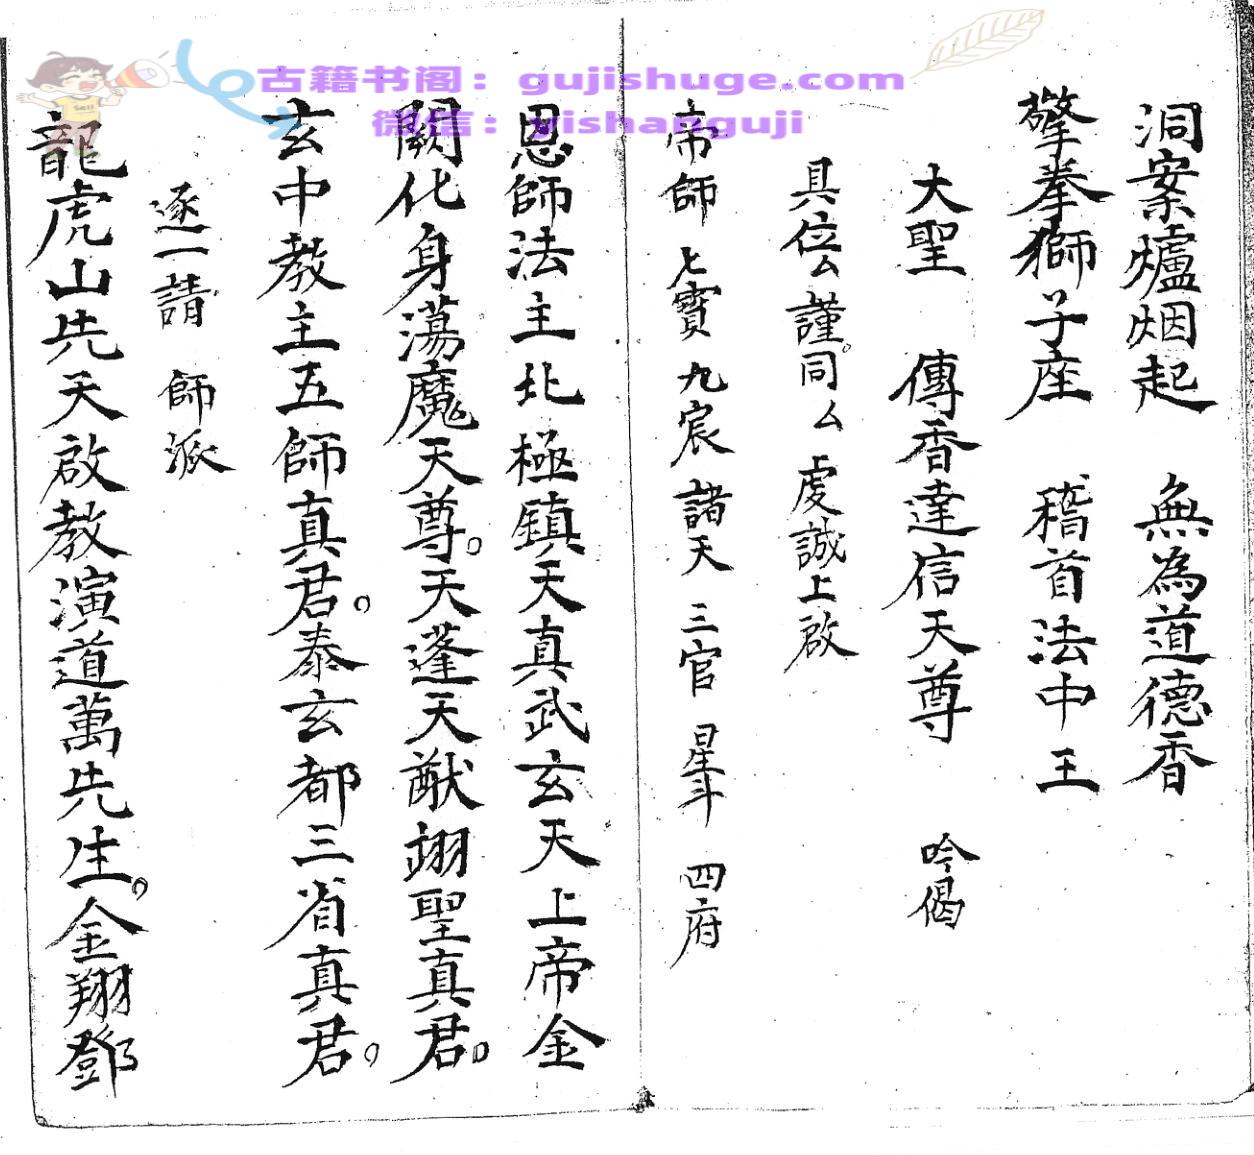 古籍书阁：gujishuge.com
微信：yishanguji
洞案爐烟起　無為道德香
擎拳獅子座　稽首法中王
大聖　傳香達信天尊　吟偈
具位厶謹同厶虔誠上啟
帝師七寶九宸諸天三官星斗四府
恩師法主北極鎮天真武玄天上帝金
闕化身蕩魔天尊。天蓬天猷翊聖真君。
玄中教主五師真君。泰玄都三省真君。
逐一請　師派
龍虎山先天啟教演道萬先生。金翔鄧